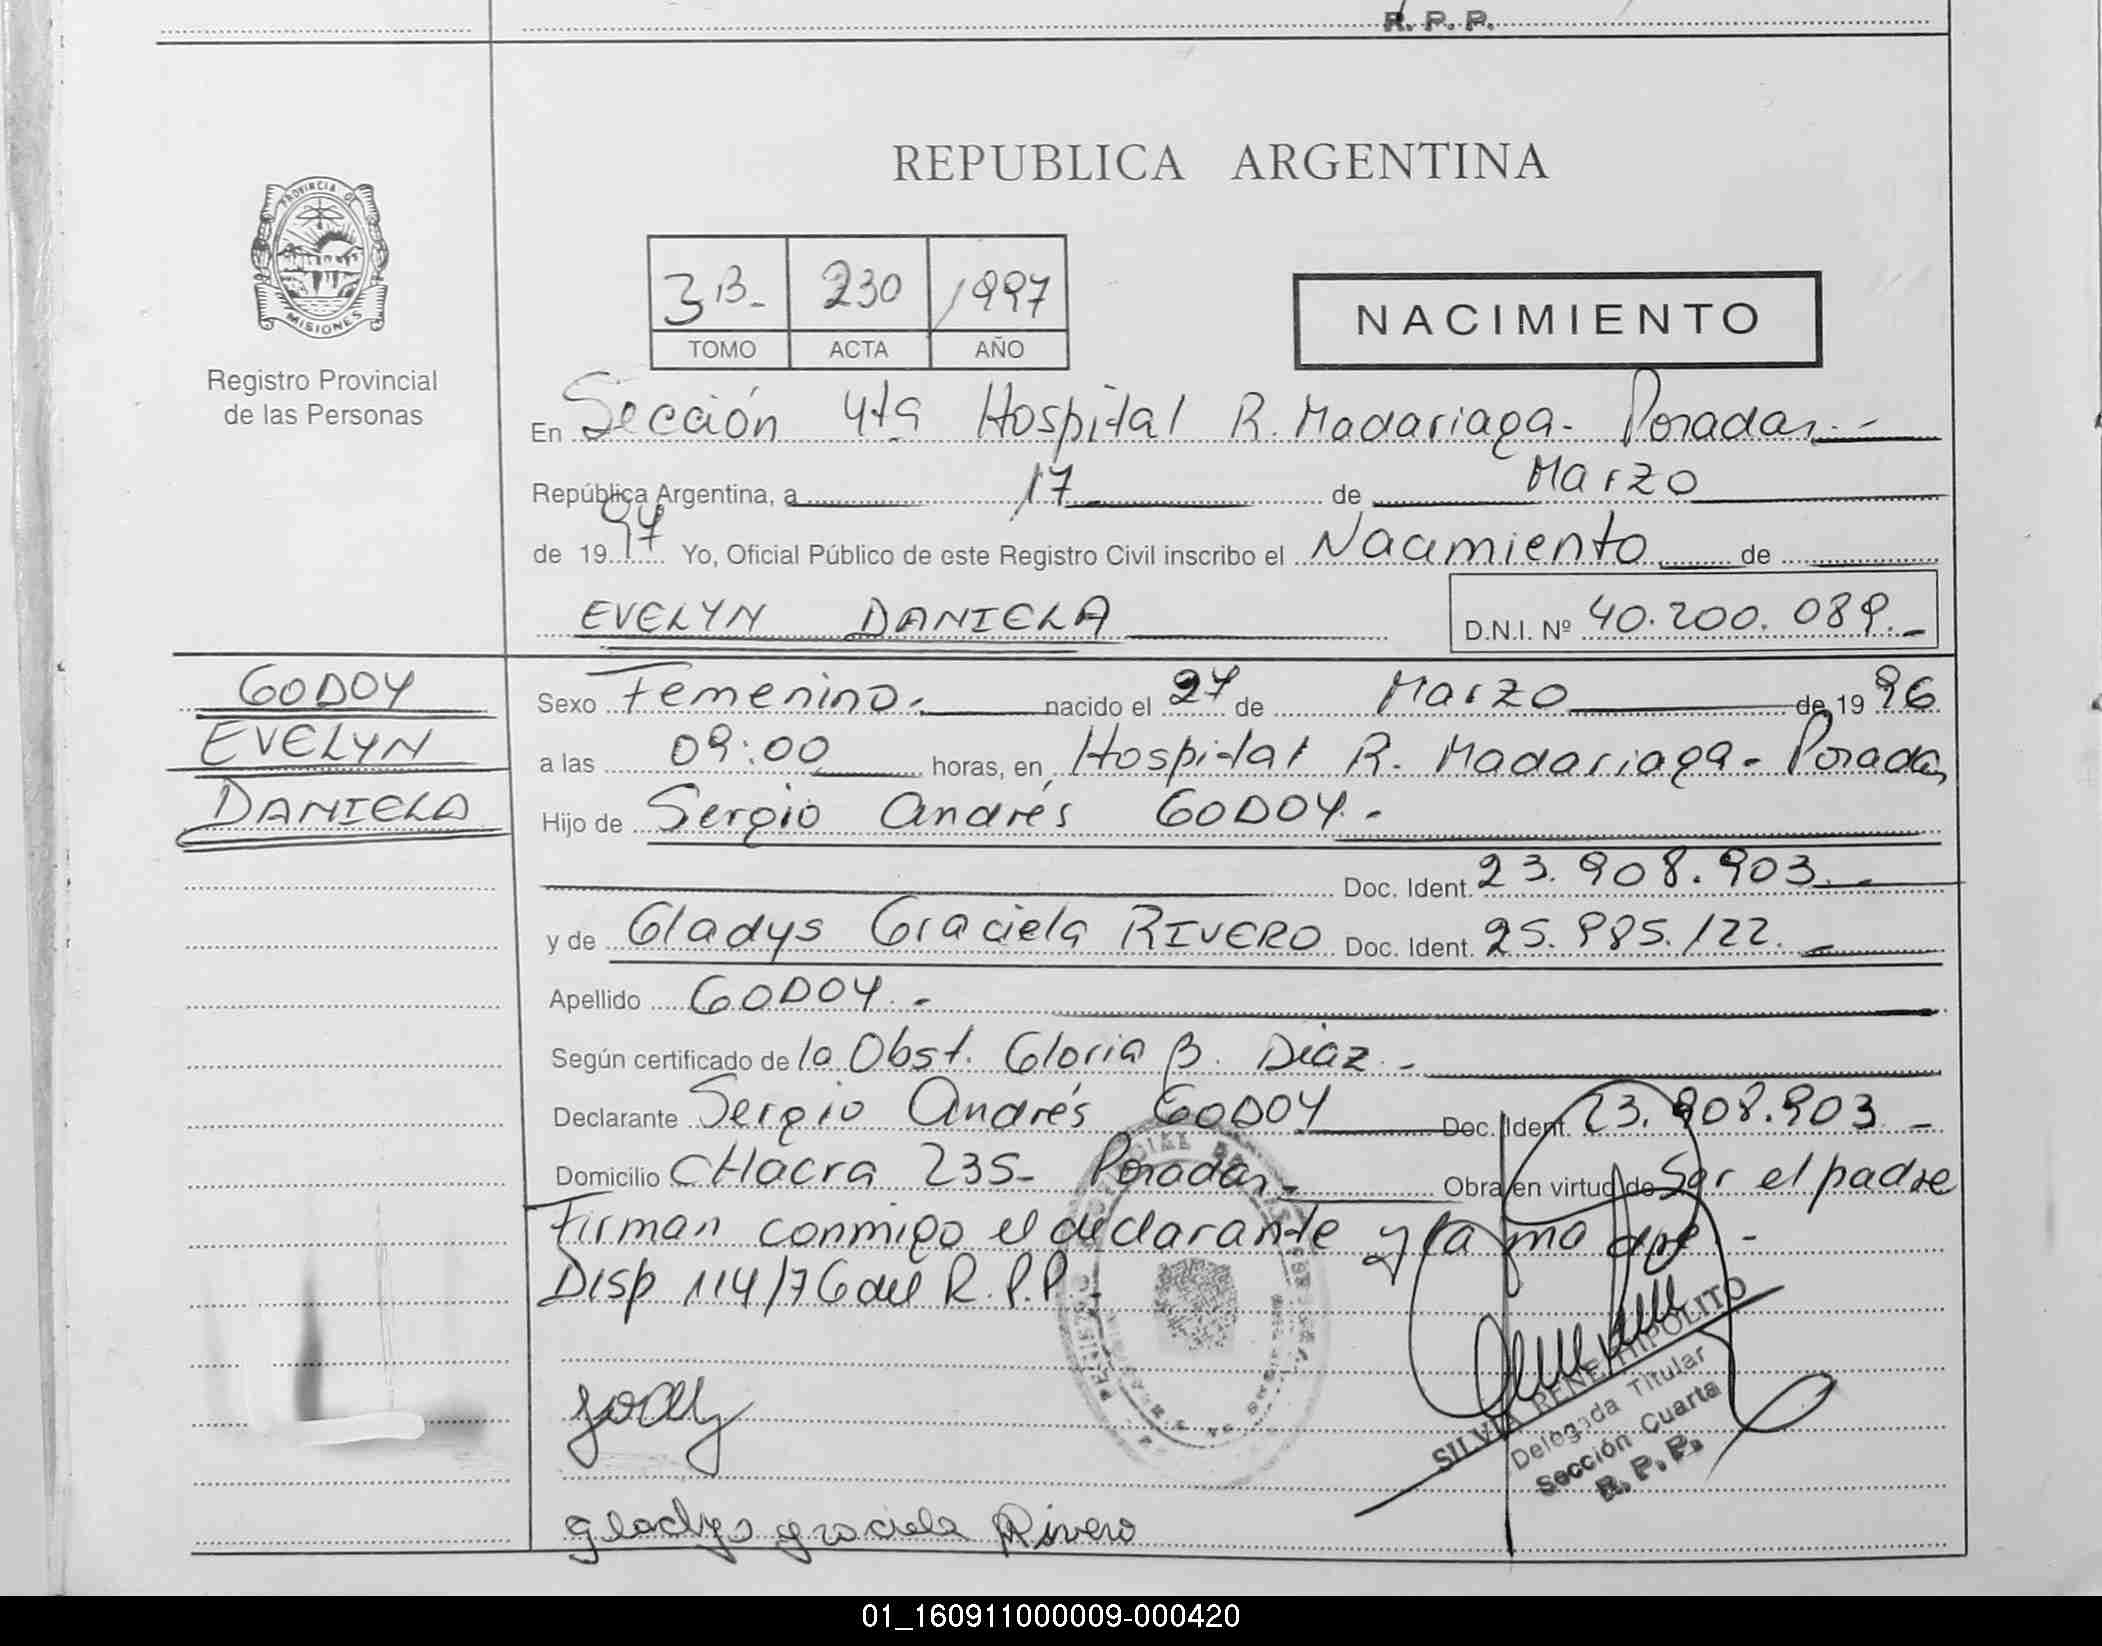 R. P. P.
REPUBLICA ARGENTINA
PROVINCIA DE
MISIONES
Registro Provincial
de las Personas
3 B- 230 1997
TOMO ACTA AÑO
NACIMIENTO
En Sección 4ta Hospital R. Madariaga - Posadas.-
República Argentina, a 17 de Marzo
de 1997 Yo, Oficial Público de este Registro Civil inscribo el Nacimiento de
EVELYN DANIELA D.N.I. Nº 40.200.089.-
GODOY
EVELYN
DANIELA
Sexo Femenino. nacido el 27 de Marzo de 1996
a las 09:00 horas, en Hospital R. Madariaga - Posadas
Hijo de Sergio Andrés GODOY.-
Doc. Ident. 23.908.903.-
y de Gladys Graciela RIVERO Doc. Ident. 25.985.122.-
Apellido GODOY.-
Según certificado de la Obst. Gloria B. Diaz.-
Declarante Sergio Andrés GODOY Doc. Ident. 23.908.903 -
Domicilio CHacra 235- Posadas.- Obra en virtud de Ser el padre
Firman conmigo el declarante y la madre.-
Disp 114/76 del R.P.P.-
SILVIA RENE HIPOLITO
Delegada Titular
Sección Cuarta
R. P. P.
gladys graciela Rivero
01_160911000009-000420